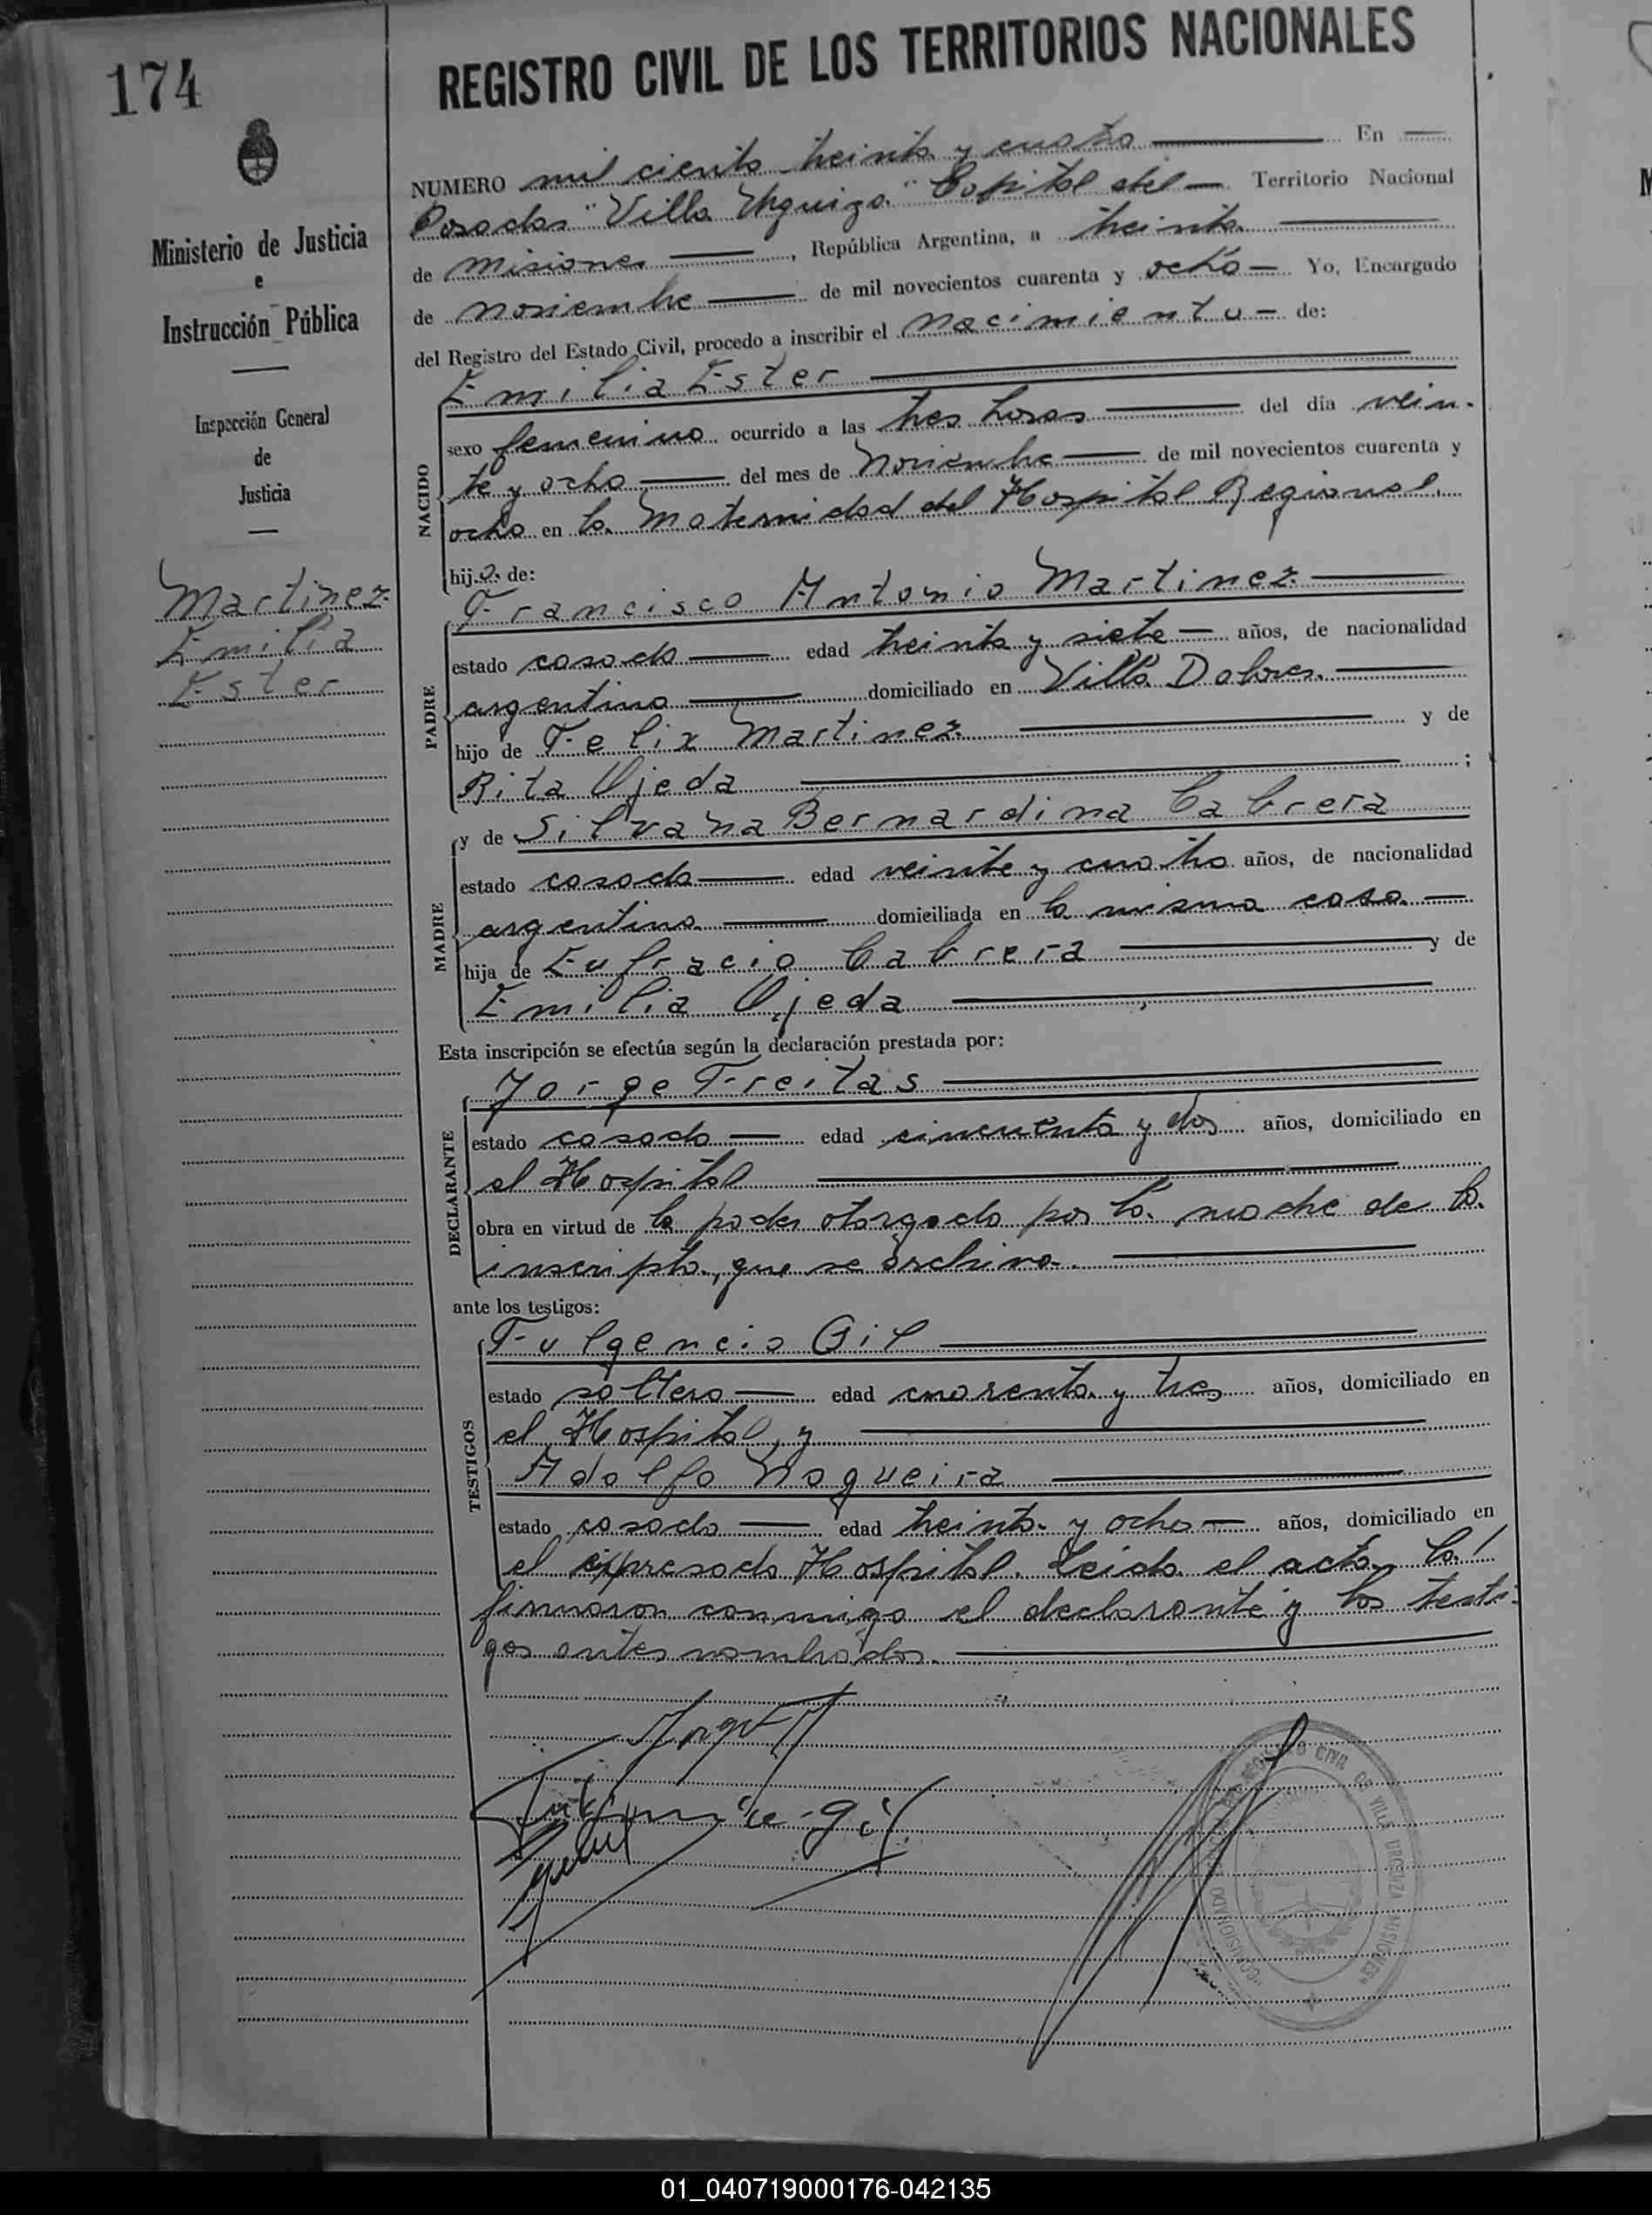 174
REGISTRO CIVIL DE LOS TERRITORIOS NACIONALES
Ministerio de Justicia
e
Instrucción Pública
Inspección General
de
Justicia
Martinez
Emilia
Ester
NUMERO mil ciento treinta y cuatro En
Posadas "Villa Urquiza" Capital del Territorio Nacional
de Misiones, República Argentina, a treinta
de noviembre de mil novecientos cuarenta y ocho Yo, Encargado
del Registro del Estado Civil, procedo a inscribir el nacimiento de:
Emilia Ester
NACIDO
sexo femenino ocurrido a las tres horas del día vein-
te y ocho del mes de Noviembre de mil novecientos cuarenta y
ocho en la Maternidad del Hospital Regional.
hija de:
PADRE
Francisco Antonio Martinez
estado casado edad treinta y siete años, de nacionalidad
argentino domiciliado en Villa Dolores.
hijo de Felix Martinez y de
Rita Ojeda ;
MADRE
y de Silvana Bernardina Cabrera
estado casada edad veinte y cuatro años, de nacionalidad
argentina domiciliada en la misma casa.
hija de Eufracio Cabrera y de
Emilia Ojeda
Esta inscripción se efectúa según la declaración prestada por:
DECLARANTE
Jorge Freitas
estado casado edad cincuenta y dos años, domiciliado en
el Hospital
obra en virtud de la poder otorgado por la madre de la
inscripta, que se archiva.
ante los testigos:
TESTIGOS
Fulgencio Gil
estado soltero edad cuarenta y tres años, domiciliado en
el Hospital, y
Adolfo Nogueira
estado casado edad treinta y ocho años, domiciliado en
el expresado Hospital. Leida el acta, la
firmaron conmigo el declarante y los testi-
gos antes nombrados.
Gil
REGISTRO CIVIL DE VILLA URQUIZA MISIONES
01_040719000176-042135